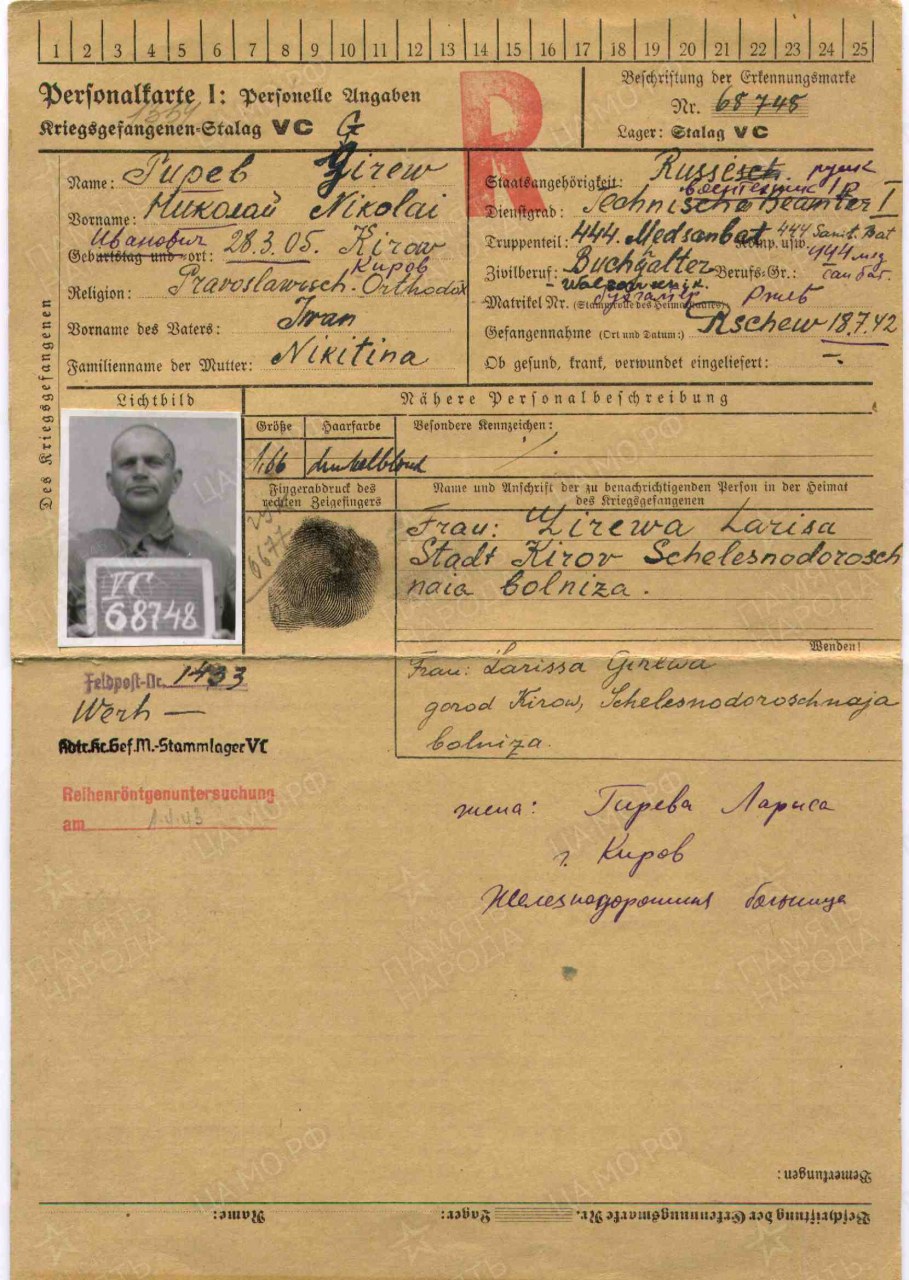 1 2 3 4 5 6 7 8 9 10 11 12 13 14 15 16 17 18 19 20 21 22 23 24 25
Personalkarte I: Personelle Angaben
Kriegsgefangenen-Stalag VC G
R
Beschriftung der Erkennungsmarke
Nr. 68 748
Lager: Stalag VC
Des Kriegsgefangenen
Name: Гирев Girew
Vorname: Николай Nikolai
Иванович
Geburtstag und -ort: 28.3.05. Kirow
Киров
Religion: Pravoslawisch. Orthodox
Vorname des Vaters: Iwan
Familienname der Mutter: Nikitina
Staatsangehörigkeit: Russisch. русск
воентехник I р
Dienstgrad: Technische Beamter I
Truppenteil: 444. Medsanbat Komp. usw. 444 Sanit. Bat
444 мед
Zivilberuf: Buchgalter Berufs-Gr.: сан бат.
бухгалтер Ржев
Matrikel Nr. (Stammrolle des Heimatstaates)
Gefangennahme (Ort und Datum:) Rschew 18.7.42
Ob gesund, krank, verwundet eingeliefert: -.
Lichtbild
Nähere Personalbeschreibung
Größe Haarfarbe Besondere Kennzeichen:
1,66 dunkelblond
Fingerabdruck des
rechten Zeigefingers
Name und Anschrift der zu benachrichtigenden Person in der Heimat
des Kriegsgefangenen
VC
68748
6677
Frau: Zirewa Larisa
Stadt Kirov Schelesnodorosch
naia bolniza.
Wenden!
Frau: Larissa Girewa
gorod Kirow, Schelesnodoroschnaja
bolniza.
Feldpost-Nr. 1433
Werh —
Kdtr.Kr.Gef.M.-Stammlager VC
Reihenröntgenuntersuchung
am
жена: Гирева Лариса
г. Киров
Железнодорожная больница
Bemerkungen:
Beschriftung der Erkennungsmarke Nr. Lager: Name:
ЦАМО.РФ
ПАМЯТЬ
НАРОДА